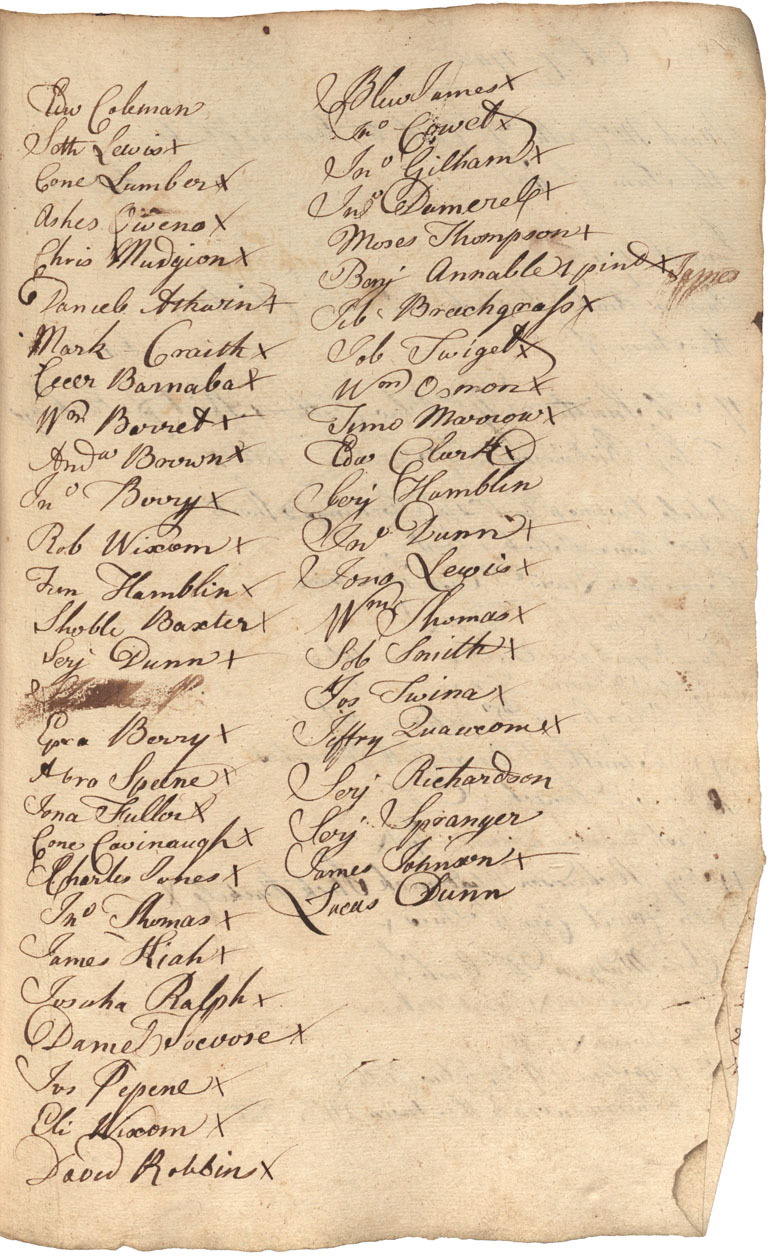 Edw Coleman
Seth Lewis x
Cone Lumber x
Ashes Qweno x
Chris Mudgion x
Daniels Ashwin x
Mark Craith x
Barnaba x
Wm Borret x
Andw Brown x
Jno Berry x
Rob Wixom x
Hamblin x
Shoble Baxter x
Serj Dunn x
Berry x
Abra Speene x
Jona Fullor x
Cone Cavinaugh x
Charles Jones x
Jno Thomas x
James Kiah x
Josuha Ralph x
Daniel x
Jos Pepene x
Eli Wixom x
David Robbins x
Blew James x
Jno Cowet x
Jno Gilham x
Jno Damerel x
Moses Thompson x
Benj Annable 1 pint x James
Breechgrass x
Job Twiget x
Wm Osmon x
Timo Marrow x
Edw Clark x
Serj Hamblin
Jno Dunn x
Jona Lewis x
Wm Thomas x
Job Smith x
Jos Twina x
Jiffry Quawcom x
Serj Richardson
Serj Spranger
James Johnson x
Lucas Dunn